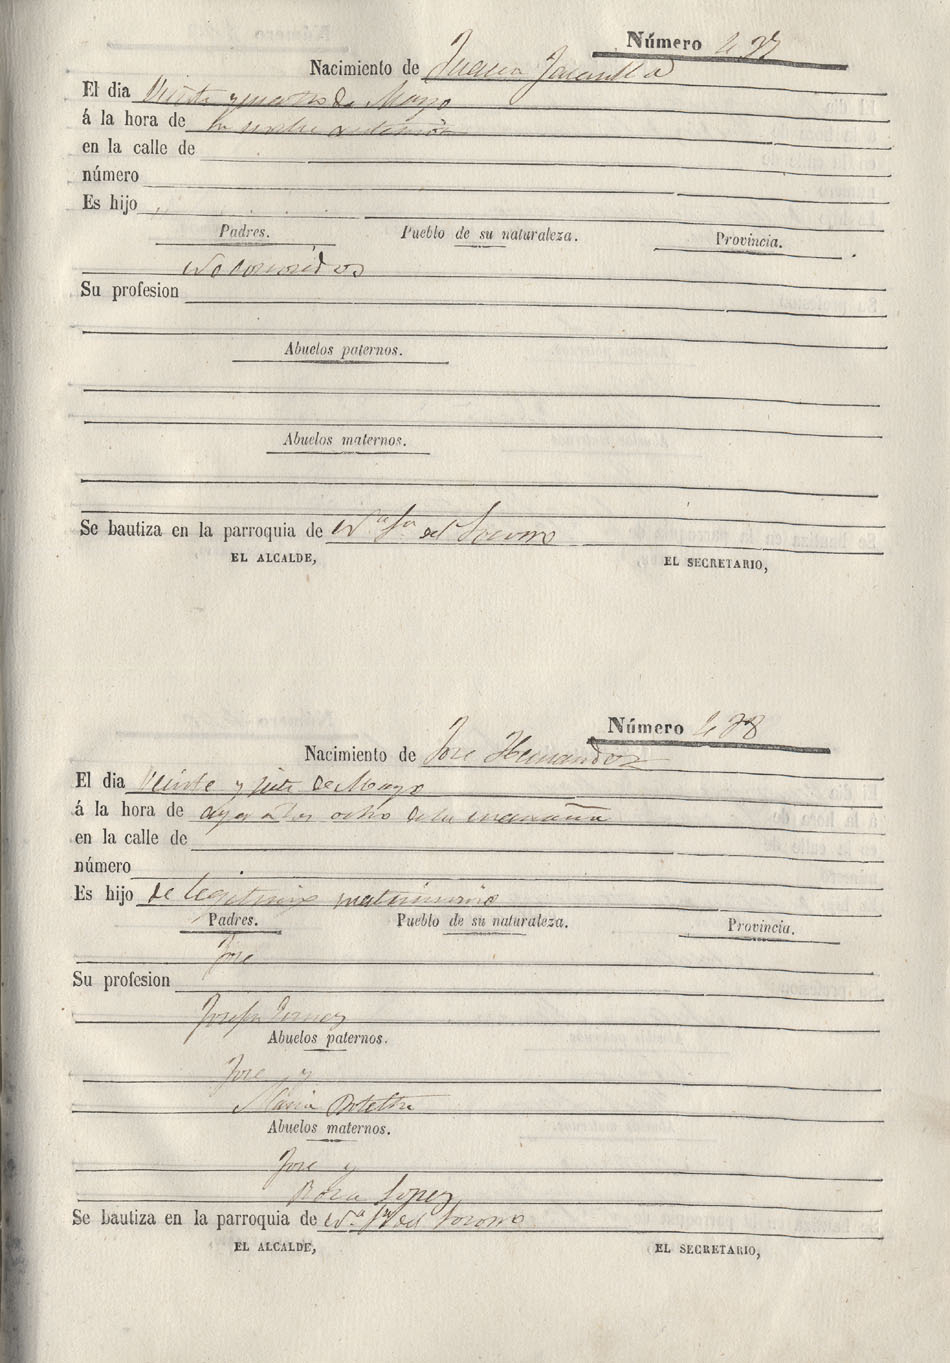 Número 437
Nacimiento de Juana Jaramilla
El dia Veinte y cuatro de Mayo
á la hora de la noche anterior
en la calle de
número
Es hijo
Padres. Pueblo de su naturaleza. Provincia.
No conocidos
Su profesion
Abuelos paternos.
Abuelos maternos.
Se bautiza en la parroquia de Nª Sra del Socorro
EL ALCALDE, EL SECRETARIO,
Número 438
Nacimiento de Jose Hernandez
El dia Veinte y siete de Mayo
á la hora de ayer a las ocho de la mañana
en la calle de
número
Es hijo de legitimo matrimonio
Padres. Pueblo de su naturaleza. Provincia.
Jose
Su profesion
Josefa Gomez
Abuelos paternos.
Jose y
Maria
Abuelos maternos.
Jose y
Rosa Lopez
Se bautiza en la parroquia de Nª Sra del Socorro
EL ALCALDE, EL SECRETARIO,